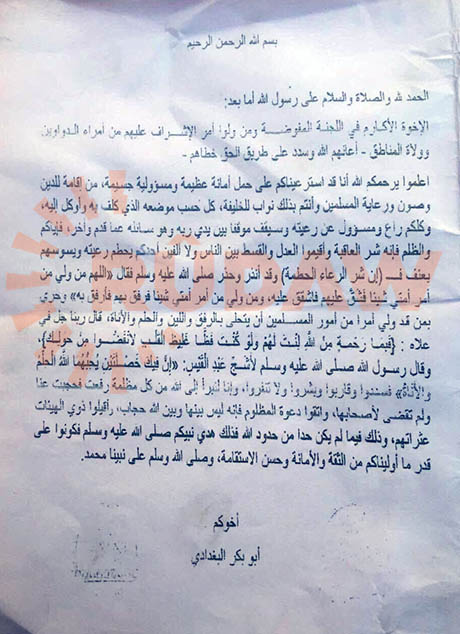 بسم الله الرحمن الرحيم
الحمد لله والصلاة والسلام على رسول الله أما بعد:
الإخوة الأكارم في اللجنة المفوضة ومن ولوا أمر الإشراف عليهم من أمراء الدواوين
وولاة المناطق - أعانهم الله وسدد على طريق الحق خطاهم -
اعلموا يرحمكم الله أنا قد استرعيناكم على حمل أمانة عظيمة ومسؤولية جسيمة، من إقامة للدين
وصون ورعاية المسلمين وأنتم بذلك نواب للخليفة، كل حسب موضعه الذي كلف به وأوكل إليه
وكلكم راع ومسؤول عن رعيته وسيقف موقفا بين يدي ربه وهو سائله عما قدم وأخر، فإياكم
والظلم فإنه شر العاقبة وأقيموا العدل والقسط بين الناس ولا ألفين أحدكم يحطم رعيته ويسوسهم
بعنف فـــ (إن شر الرعاء الحطمة) وقد أنذر وحذر صلى الله عليه وسلم فقال «اللهم من ولي من
أمر أمتي شيئا فشق عليهم فاشقق عليه، ومن ولي من أمر أمتي شيئا فرفق بهم فارفق به» وحري
بمن قد ولي أمرا من أمور المسلمين أن يتحلى بالرفق واللين والحلم والأناة، قال ربنا جل في
علاه : {فَبِمَا رَحْمَةٍ مِنَ اللَّهِ لِنْتَ لَهُمْ وَلَوْ كُنْتَ فَظًّا غَلِيظَ الْقَلْبِ لَانْفَضُّوا مِنْ حَوْلِكَ}،
وقال رسول الله صلى الله عليه وسلم لأشج عبد القيس: «إن فيك خصلتين يحبهما الله الحلم
والأناة» فسددوا وقاربوا وبشروا ولا تنفروا، وإنا لنبرأ إلى الله من كل مظلمة رفعت فحجبت عنا
ولم تقضى لأصحابها، واتقوا دعوة المظلوم فإنه ليس بينها وبين الله حجاب، وأقيلوا ذوي الهيئات
عثراتهم، وذلك فيما لم يكن حدا من حدود الله فذلك هدي نبيكم صلى الله عليه وسلم فكونوا على
قدر ما أوليناكم من الثقة والأمانة وحسن الاستقامة، وصلى الله وسلم على نبينا محمد.
أخوكم
أبو بكر البغدادي
RUDAW